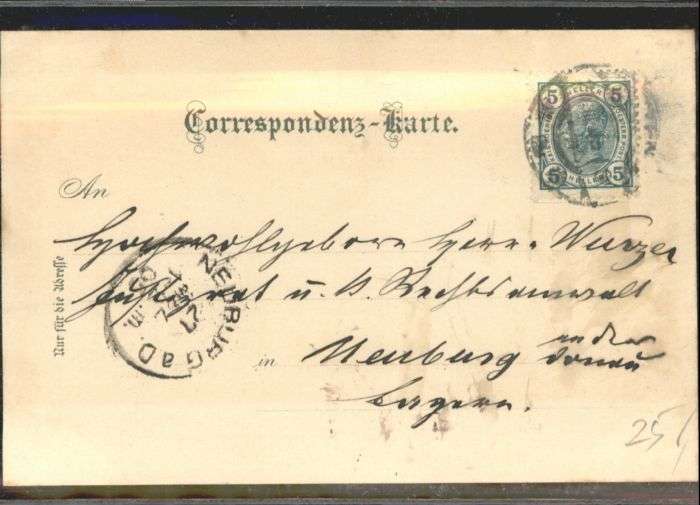 Correspondenz-Karte.
5 HELLER 5
5 HELLER 5
An
Hochwohlgeboren Herrn Wurzer
Justizrat u. K. Rechtsanwalt
in Neuburg an der Donau
Bayern.
Nur für die Adresse
NEUBURG a D.
25